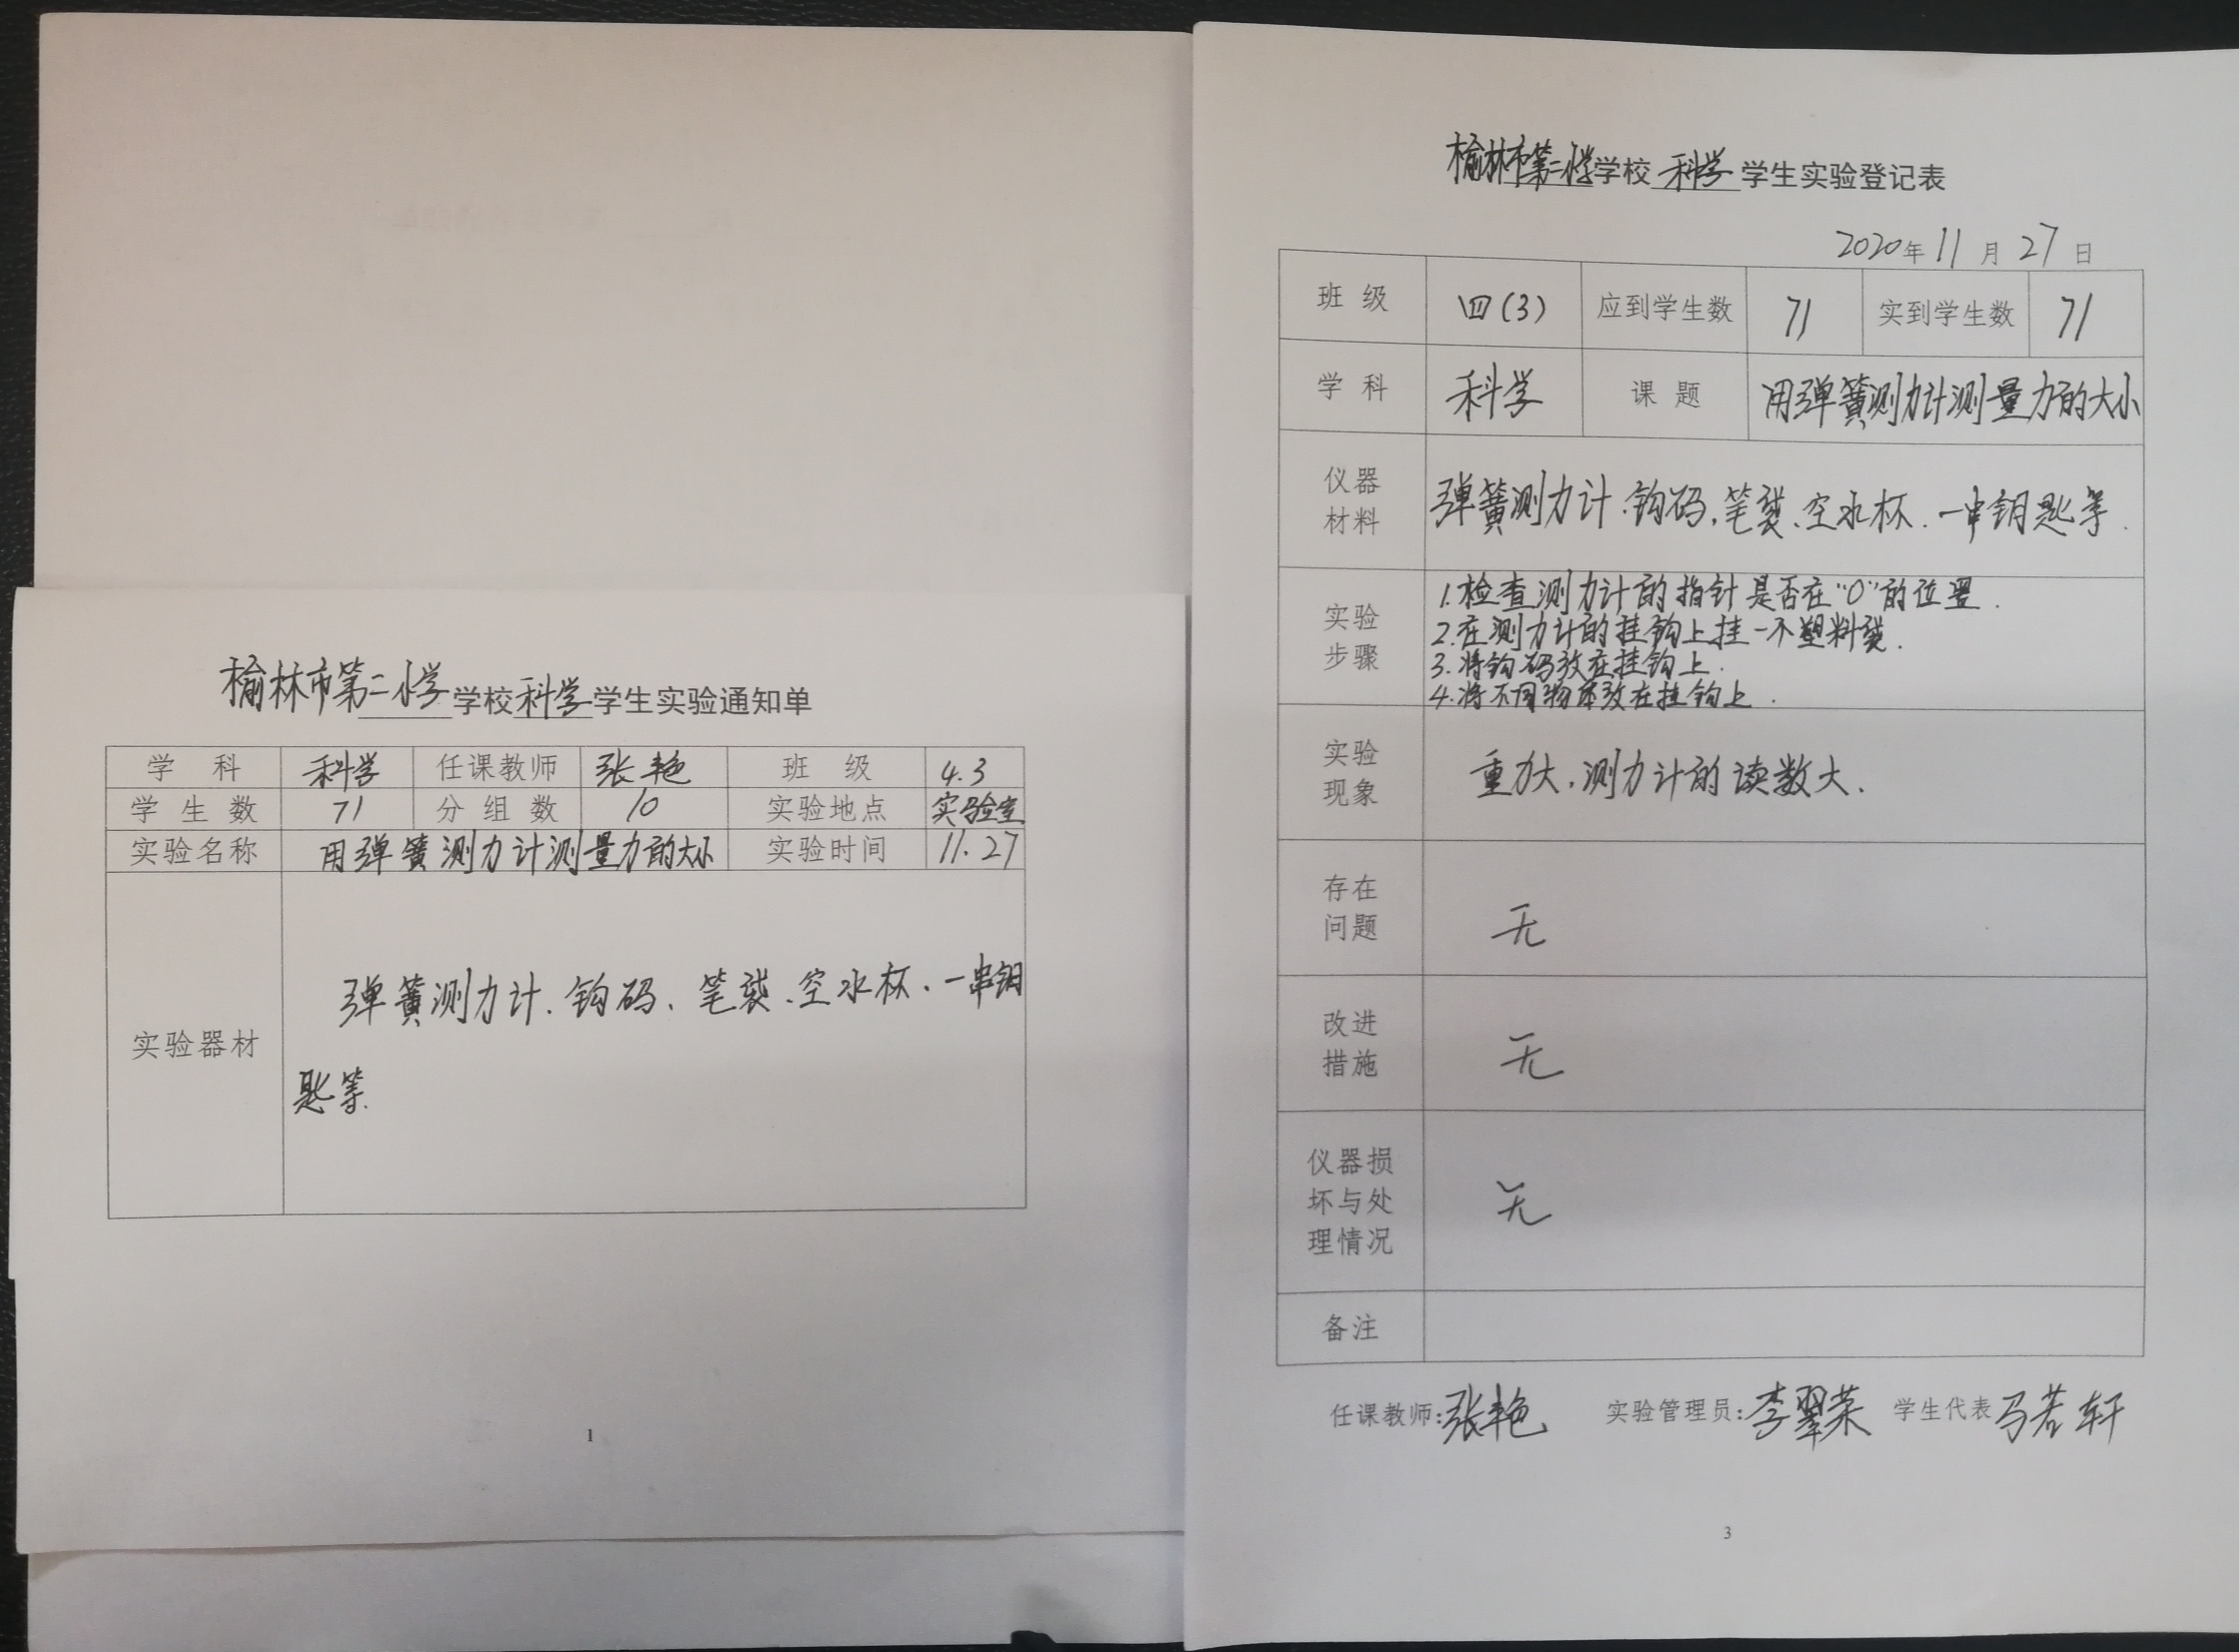 榆林市第二小学学校科学学生实验通知单
学 科 科学 任课教师 张艳 班 级 4.3
学 生 数 71 分 组 数 10 实验地点 实验室
实验名称 用弹簧测力计测量力的大小 实验时间 11.27
实验器材
弹簧测力计、钩码、笔袋、空水杯、一串钥
匙等.
1
榆林市第二小学学校科学学生实验登记表
2020年11月27日
班 级 四(3) 应到学生数 71 实到学生数 71
学 科 科学 课 题 用弹簧测力计测量力的大小
仪器
材料
弹簧测力计、钩码、笔袋、空水杯、一串钥匙等.
实验
步骤
1.检查测力计的指针是否在“0”的位置.
2.在测力计的挂钩上挂一个塑料袋.
3.将钩码放在挂钩上.
4.将不同物体放在挂钩上.
实验
现象
重力大,测力计的读数大.
存在
问题
无
改进
措施
无
仪器损
坏与处
理情况
无
备注
任课教师:张艳 实验管理员:李翠荣 学生代表 马若轩
3